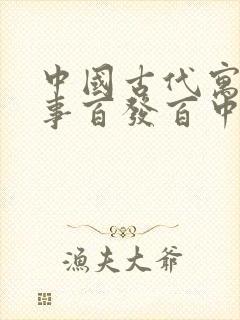 中國古代寓
事百發百中
漁夫大爺